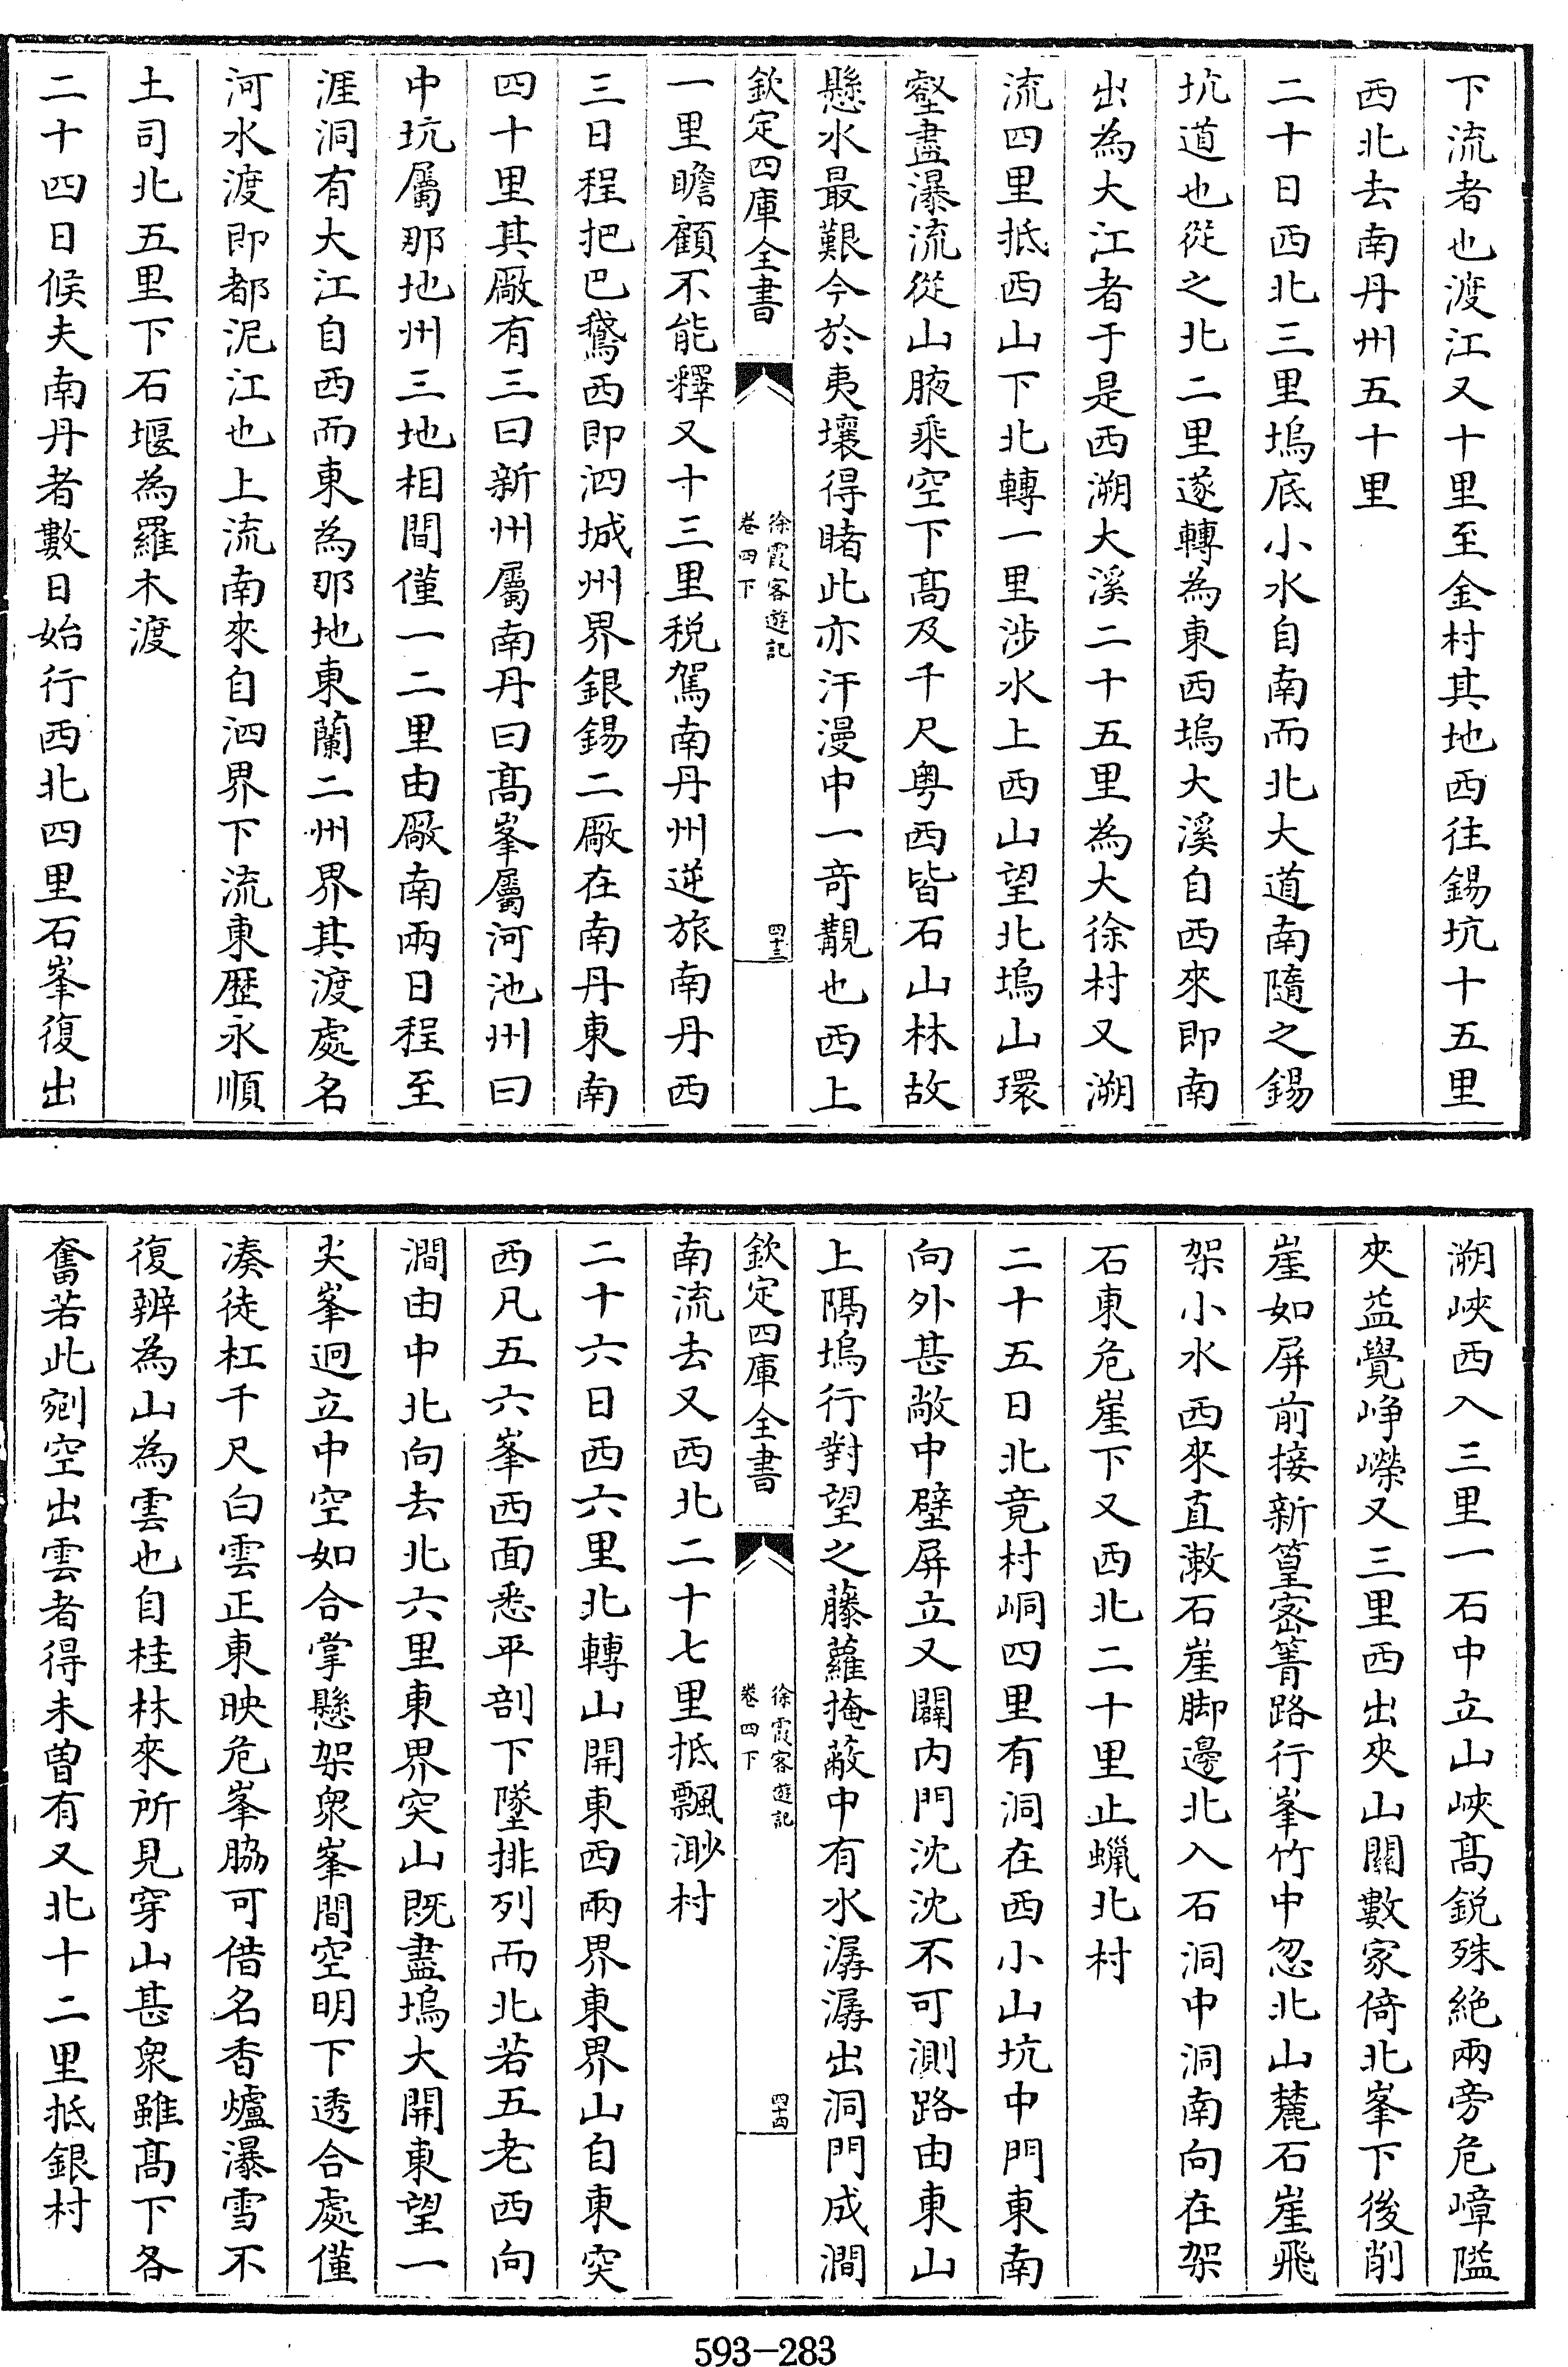 下流者也渡江又十里至金村其地西往錫坑十五里
西北去南丹州五十里
二十日西北三里塢底小水自南而北大道南隨之錫
坑道也從之北二里遂轉為東西塢大溪自西來即南
出為大江者于是西溯大溪二十五里為大徐村又溯
流四里抵西山下北轉一里涉水上西山望北塢山環
壑盡瀑流從山腋乘空下髙及千尺粤西皆石山林故
懸水最艱今於夷壤得睹此亦汗漫中一竒觀也西上
欽定四庫全書
徐霞客遊記
卷四下
四十三
一里瞻顧不能釋又十三里税駕南丹州逆旅南丹西
三日程把巴鵞西即泗城州界銀錫二廠在南丹東南
四十里其廠有三曰新州屬南丹曰髙峯屬河池州曰
中坑屬那地州三地相間僅一二里由廠南兩日程至
涯洞有大江自西而東為那地東蘭二州界其渡處名
河水渡即都泥江也上流南來自泗界下流東歴永順
土司北五里下石堰為羅木渡
二十四日候夫南丹者數日始行西北四里石峯復出
溯峽西入三里一石中立山峽髙鋭殊絶兩旁危嶂隘
夾益覺崢嶸又三里西出夾山關數家倚北峯下後削
崖如屏前接新篁宻箐路行峯竹中忽北山麓石崖飛
架小水西來直漱石崖脚邊北入石洞中洞南向在架
石東危崖下又西北二十里止蠟北村
二十五日北竟村峒四里有洞在西小山坑中門東南
向外甚敞中壁屏立又闢内門沈沈不可測路由東山
上隔塢行對望之藤蘿掩蔽中有水潺潺出洞門成澗
欽定四庫全書
徐霞客遊記
卷四下
四十四
南流去又西北二十七里抵飄渺村
二十六日西六里北轉山開東西兩界東界山自東突
西凡五六峯西面悉平剖下墜排列而北若五老西向
澗由中北向去北六里東界突山既盡塢大開東望一
尖峯迥立中空如合掌懸架衆峯間空明下透合處僅
凑徒杠千尺白雲正東映危峯脇可借名香爐瀑雪不
復辨為山為雲也自桂林來所見穿山甚衆雖髙下各
奮若此剜空出雲者得未曽有又北十二里抵銀村
593-283